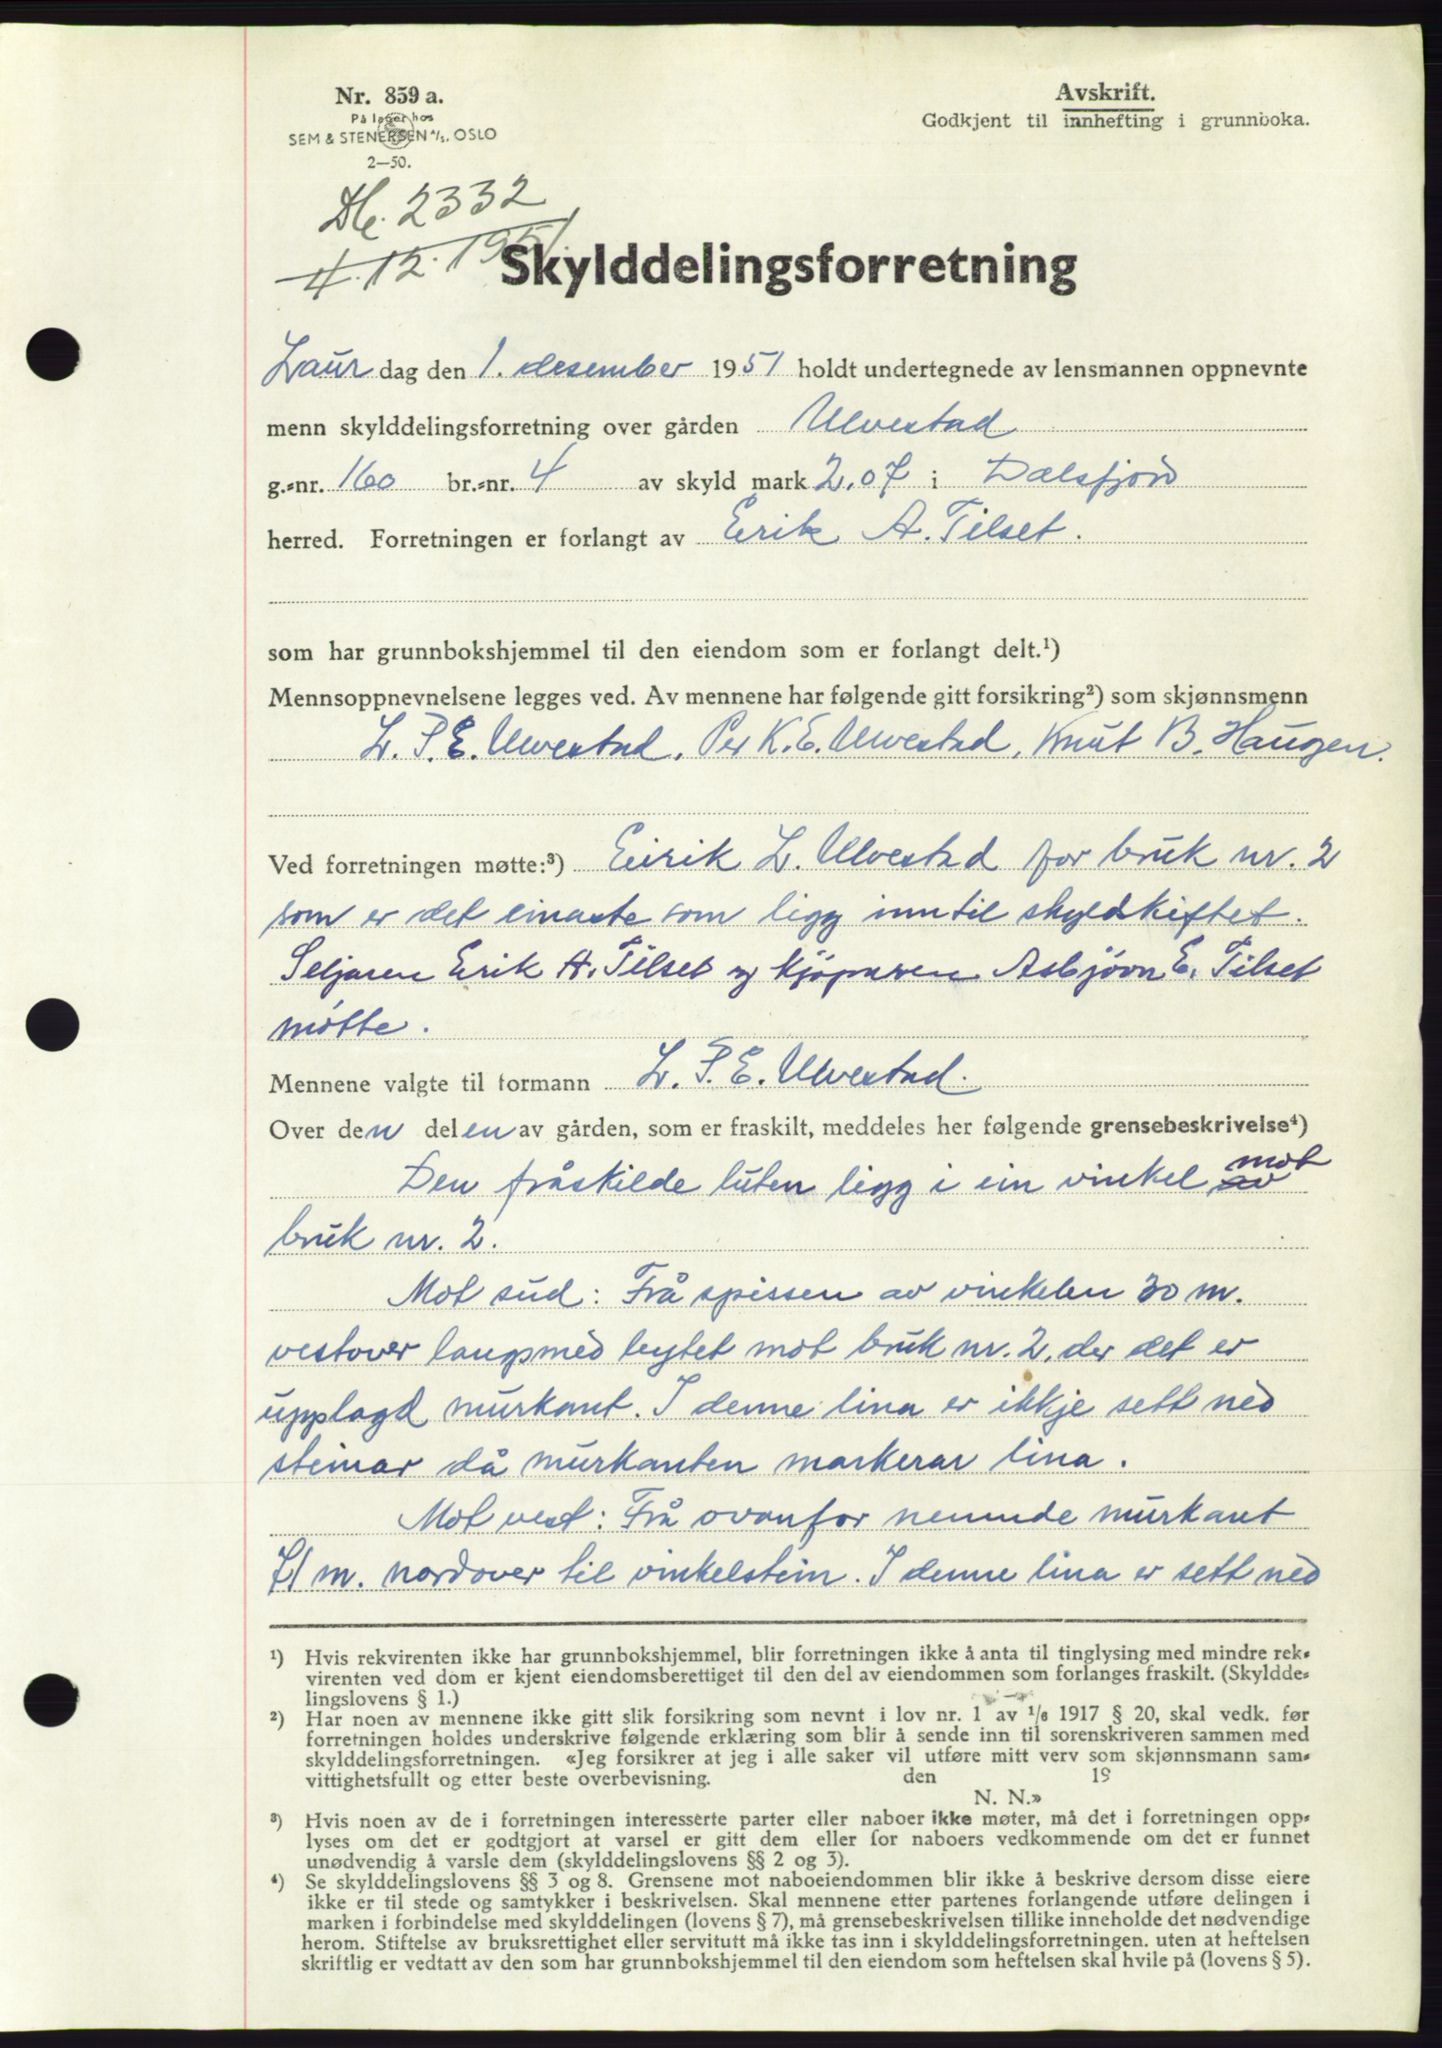 Nr. 859 a.
På lager hos
SEM & STENERSEN A/S. OSLO
2—50.
Avskrift.
Godkjent til innhefting i grunnboka.
2332
4.12.1951.
Skylddelingsforretning
Laur dag den 1. desember 1951 holdt undertegnede av lensmannen oppnevnte
menn skylddelingsforretning over gården Ulvestad
g.-nr. 160 br.-nr. 4 av skyld mark 2,07 i Dalsfjord
herred. Forretningen er forlangt av Erik A. Tilset.
som har grunnbokshjemmel til den eiendom som er forlangt delt.¹)
Mennsoppnevnelsene legges ved. Av mennene har følgende gitt forsikring²) som skjønnsmenn
L. P. E. Ulvestad, Per K. E. Ulvestad, Knut B. Haugen.
Ved forretningen møtte:³) Eirik L. Ulvestad for bruk nr. 2
som er det einaste som ligg inntil skyldskiftet.
Seljaren Erik A. Tilset og kjøparen Asbjørn E. Tilset
møtte.
Mennene valgte til formann L. P. E. Ulvestad.
Over den delen av gården, som er fraskilt, meddeles her følgende grensebeskrivelse⁴)
Den fråskilde luten ligg i ein vinkel av mot
bruk nr. 2.
Mot sud: Frå spissen av vinkelen 30 m.
vestover langsmed bytet mot bruk nr. 2, der det er
upplagd murkant. I denne lina er ikkje sett ned
steinar då murkanten markerar lina.
Mot vest: Frå ovanfor nemnde murkant
71 m. nordover til vinkelstein. I denne lina er sett ned
¹) Hvis rekvirenten ikke har grunnbokshjemmel, blir forretningen ikke å anta til tinglysing med mindre rek-
virenten ved dom er kjent eiendomsberettiget til den del av eiendommen som forlanges fraskilt. (Skyldde-
lingslovens § 1.)
²) Har noen av mennene ikke gitt slik forsikring som nevnt i lov nr. 1 av ¹/₆ 1917 § 20, skal vedk. før
forretningen holdes underskrive følgende erklæring som blir å sende inn til sorenskriveren sammen med
skylddelingsforretningen. «Jeg forsikrer at jeg i alle saker vil utføre mitt verv som skjønnsmann sam-
vittighetsfullt og etter beste overbevisning. den 19
N. N.»
³) Hvis noen av de i forretningen interesserte parter eller naboer ikke møter, må det i forretningen opp-
lyses om det er godtgjort at varsel er gitt dem eller for naboers vedkommende om det er funnet
unødvendig å varsle dem (skylddelingslovens §§ 2 og 3).
⁴) Se skylddelingslovens §§ 3 og 8. Grensene mot naboeiendommen blir ikke å beskrive dersom disse eiere
ikke er til stede og samtykker i beskrivelsen. Skal mennene etter partenes forlangende utføre delingen i
marken i forbindelse med skylddelingen (lovens § 7), må grensebeskrivelsen tillike inneholde det nødvendige
herom. Stiftelse av bruksrettighet eller servitutt må ikke tas inn i skylddelingsforretningen. uten at heftelsen
skriftlig er vedtatt av den som har grunnbokshjemmel til den eiendom som heftelsen skal hvile på (lovens § 5).